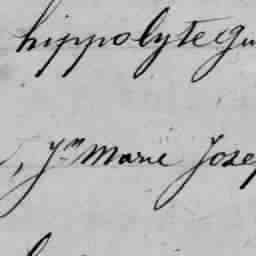 hippolyte Gu
, Jn Marie Josep